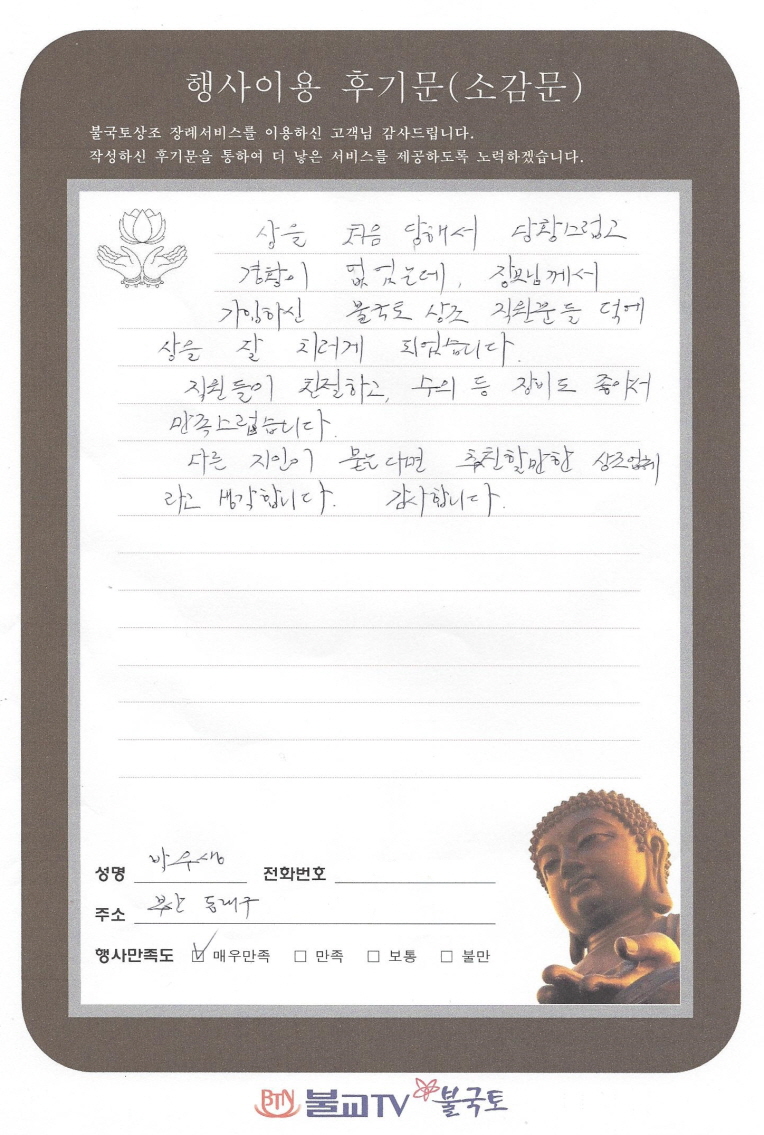 행사이용 후기문(소감문)
불국토상조 장례서비스를 이용하신 고객님 감사드립니다.
작성하신 후기문을 통하여 더 낳은 서비스를 제공하도록 노력하겠습니다.
상을 처음 당해서 당황스럽고
경황이 없었는데, 장모님께서
가입하신 불국토 상조 직원분들 덕에
상을 잘 치러게 되었습니다.
직원들이 친절하고, 수의 등 장비도 좋아서
만족스럽습니다.
다른 지인이 묻는다면 추천할만한 상조업체
라고 생각합니다. 감사합니다.
성명 박우생 전화번호
주소 부산 동래구
행사만족도 매우만족 만족 보통 불만
BTN 불교TV 불국토